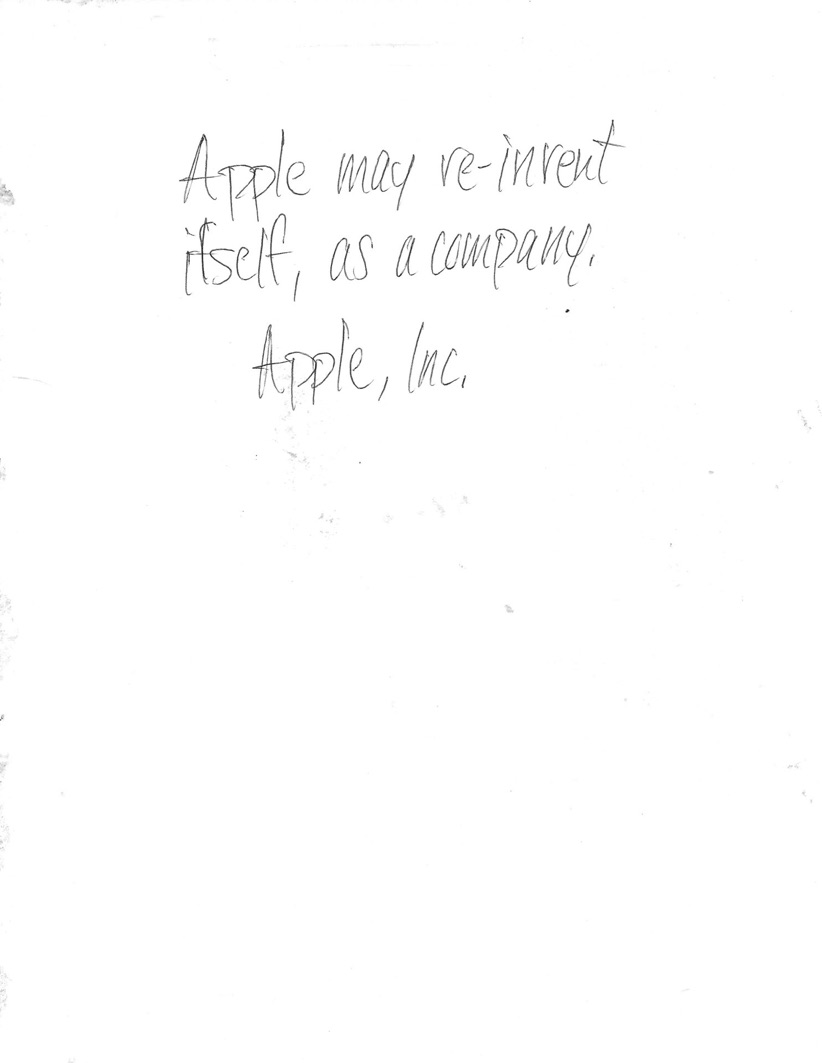 Apple may re-invent
itself, as a company.
Apple, Inc.